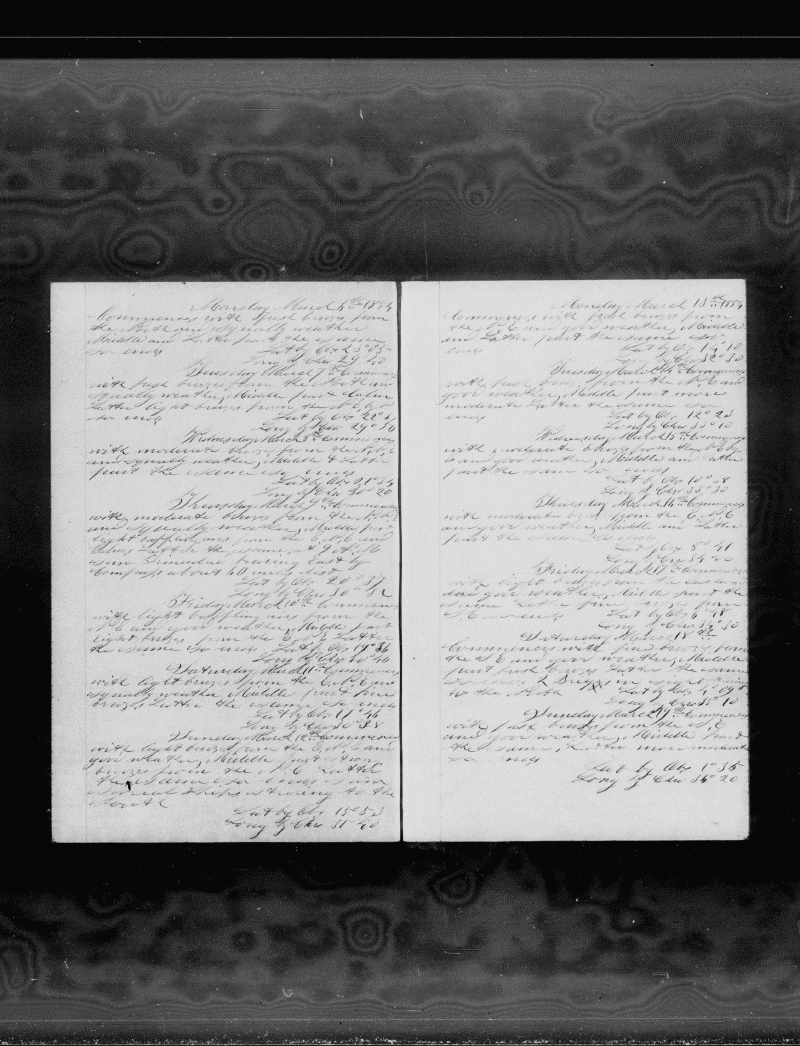 Monday March 6th 1854
Commences with fresh breezes from
the North and squally weather
Middle and Latter part the same
so ends Lat by Obs 25° 05
Long by Chro 29° 40
Tuesday March 7th Commences
with fresh breezes from the North and
squally weather, Middle part
Latter light breezes from the N.E.
so ends Lat by Obs 22°
Long by Chro 29° 50
Wednesday March 8th Commences
with moderate breezes from the
and squally weather, Middle & Latter
part the same so ends
Lat by Obs 21° 34
Long by Chro 30° 20
Thursday March 9th Commences
with moderate breezes from the
and squally weather, Middle
light baffling airs from the E.N.E and
Calms Latter the same, at
bearing East by
Compass about 40 miles dist
Lat by Obs 20° 37
Long by Chro 30°
Friday March 10th Commences
with light baffling airs from the
N.E and weather, Middle part
light breezes from the E.N.E Latter
the same so ends Lat by Obs 19° 36
Long by Chro 30° 40
Saturday March 11th Commences
with light breezes from the E.N.E and
squally weather Middle part fine
breezes, Latter the same so ends
Lat by Obs 17° 46
Long by Chro
Sunday March 12th Commences
with light breezes from the E.N.E and
good weather, Middle part strong
breezes from the N.E Latter
the same so ends
several ships steering to the
South
Lat by Obs 15° 53
Long by Chro 31° 40
Monday March 13th 1854
Commences with fresh breezes from
the N.E and good weather, Middle
and Latter part the same so
ends Lat by Obs 14° 10
Long by Chro 32° 30
Tuesday March 14th Commences
with fresh breezes from the N.E and
good weather, Middle part more
moderate Latter the same so
ends Lat by Obs 12° 23
Long by Chro 33° 10
Wednesday March 15th Commences
with moderate breezes from the
and good weather, Middle and Latter
part the same so ends
Lat by Obs 10°
Long by Chro 33° 50
Thursday March 16th Commences
with moderate from the E.N.E
and good weather, Middle and Latter
part the same so ends
Lat by Obs 8° 41
Long by Chro 34°
Friday March 17th Commences
with light breezes from the
good weather, Middle part the
same Latter fine breezes from
N.E so ends Lat by Obs 6° 48
Long by Chro 34° 50
Saturday March 18th
Commences with fine breezes from
the N.E and good weather, Middle
part fresh breezes Latter the same
so ends 2 Brigs in sight steering
to the North Lat by Obs 4° 09
Long by Chro 35° 10
Sunday March 19th Commences
with fresh breezes from the N.E
and good weather, Middle part
the same, Latter more moderate
so ends
Lat by Obs 1° 35
Long by Chro 34° 20